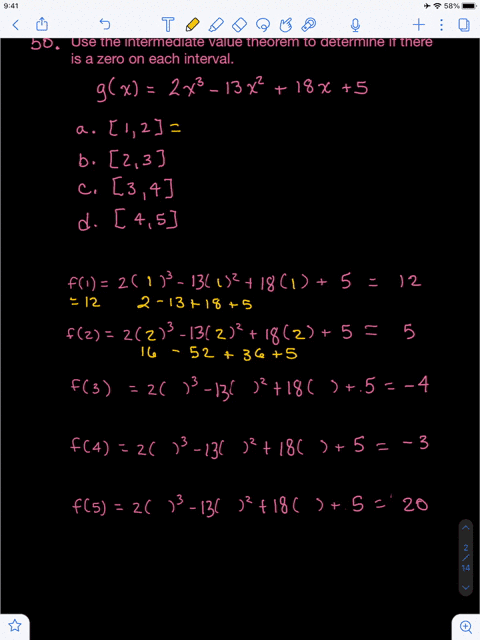 9:41
58%
50. Use the intermediate value theorem to determine if there
is a zero on each interval.
g(x) = 2x³ - 13x² + 18x + 5
a. [1,2] =
b. [2,3]
c. [3,4]
d. [4,5]
f(1) = 2(1)³ - 13(1)² + 18(1) + 5 = 12
= 12 2 - 13 + 18 + 5
f(2) = 2(2)³ - 13(2)² + 18(2) + 5 = 5
16 - 52 + 36 + 5
f(3) = 2( )³ - 13( )² + 18( ) + 5 = -4
f(4) = 2( )³ - 13( )² + 18( ) + 5 = -3
f(5) = 2( )³ - 13( )² + 18( ) + 5 = 20
2
/
14